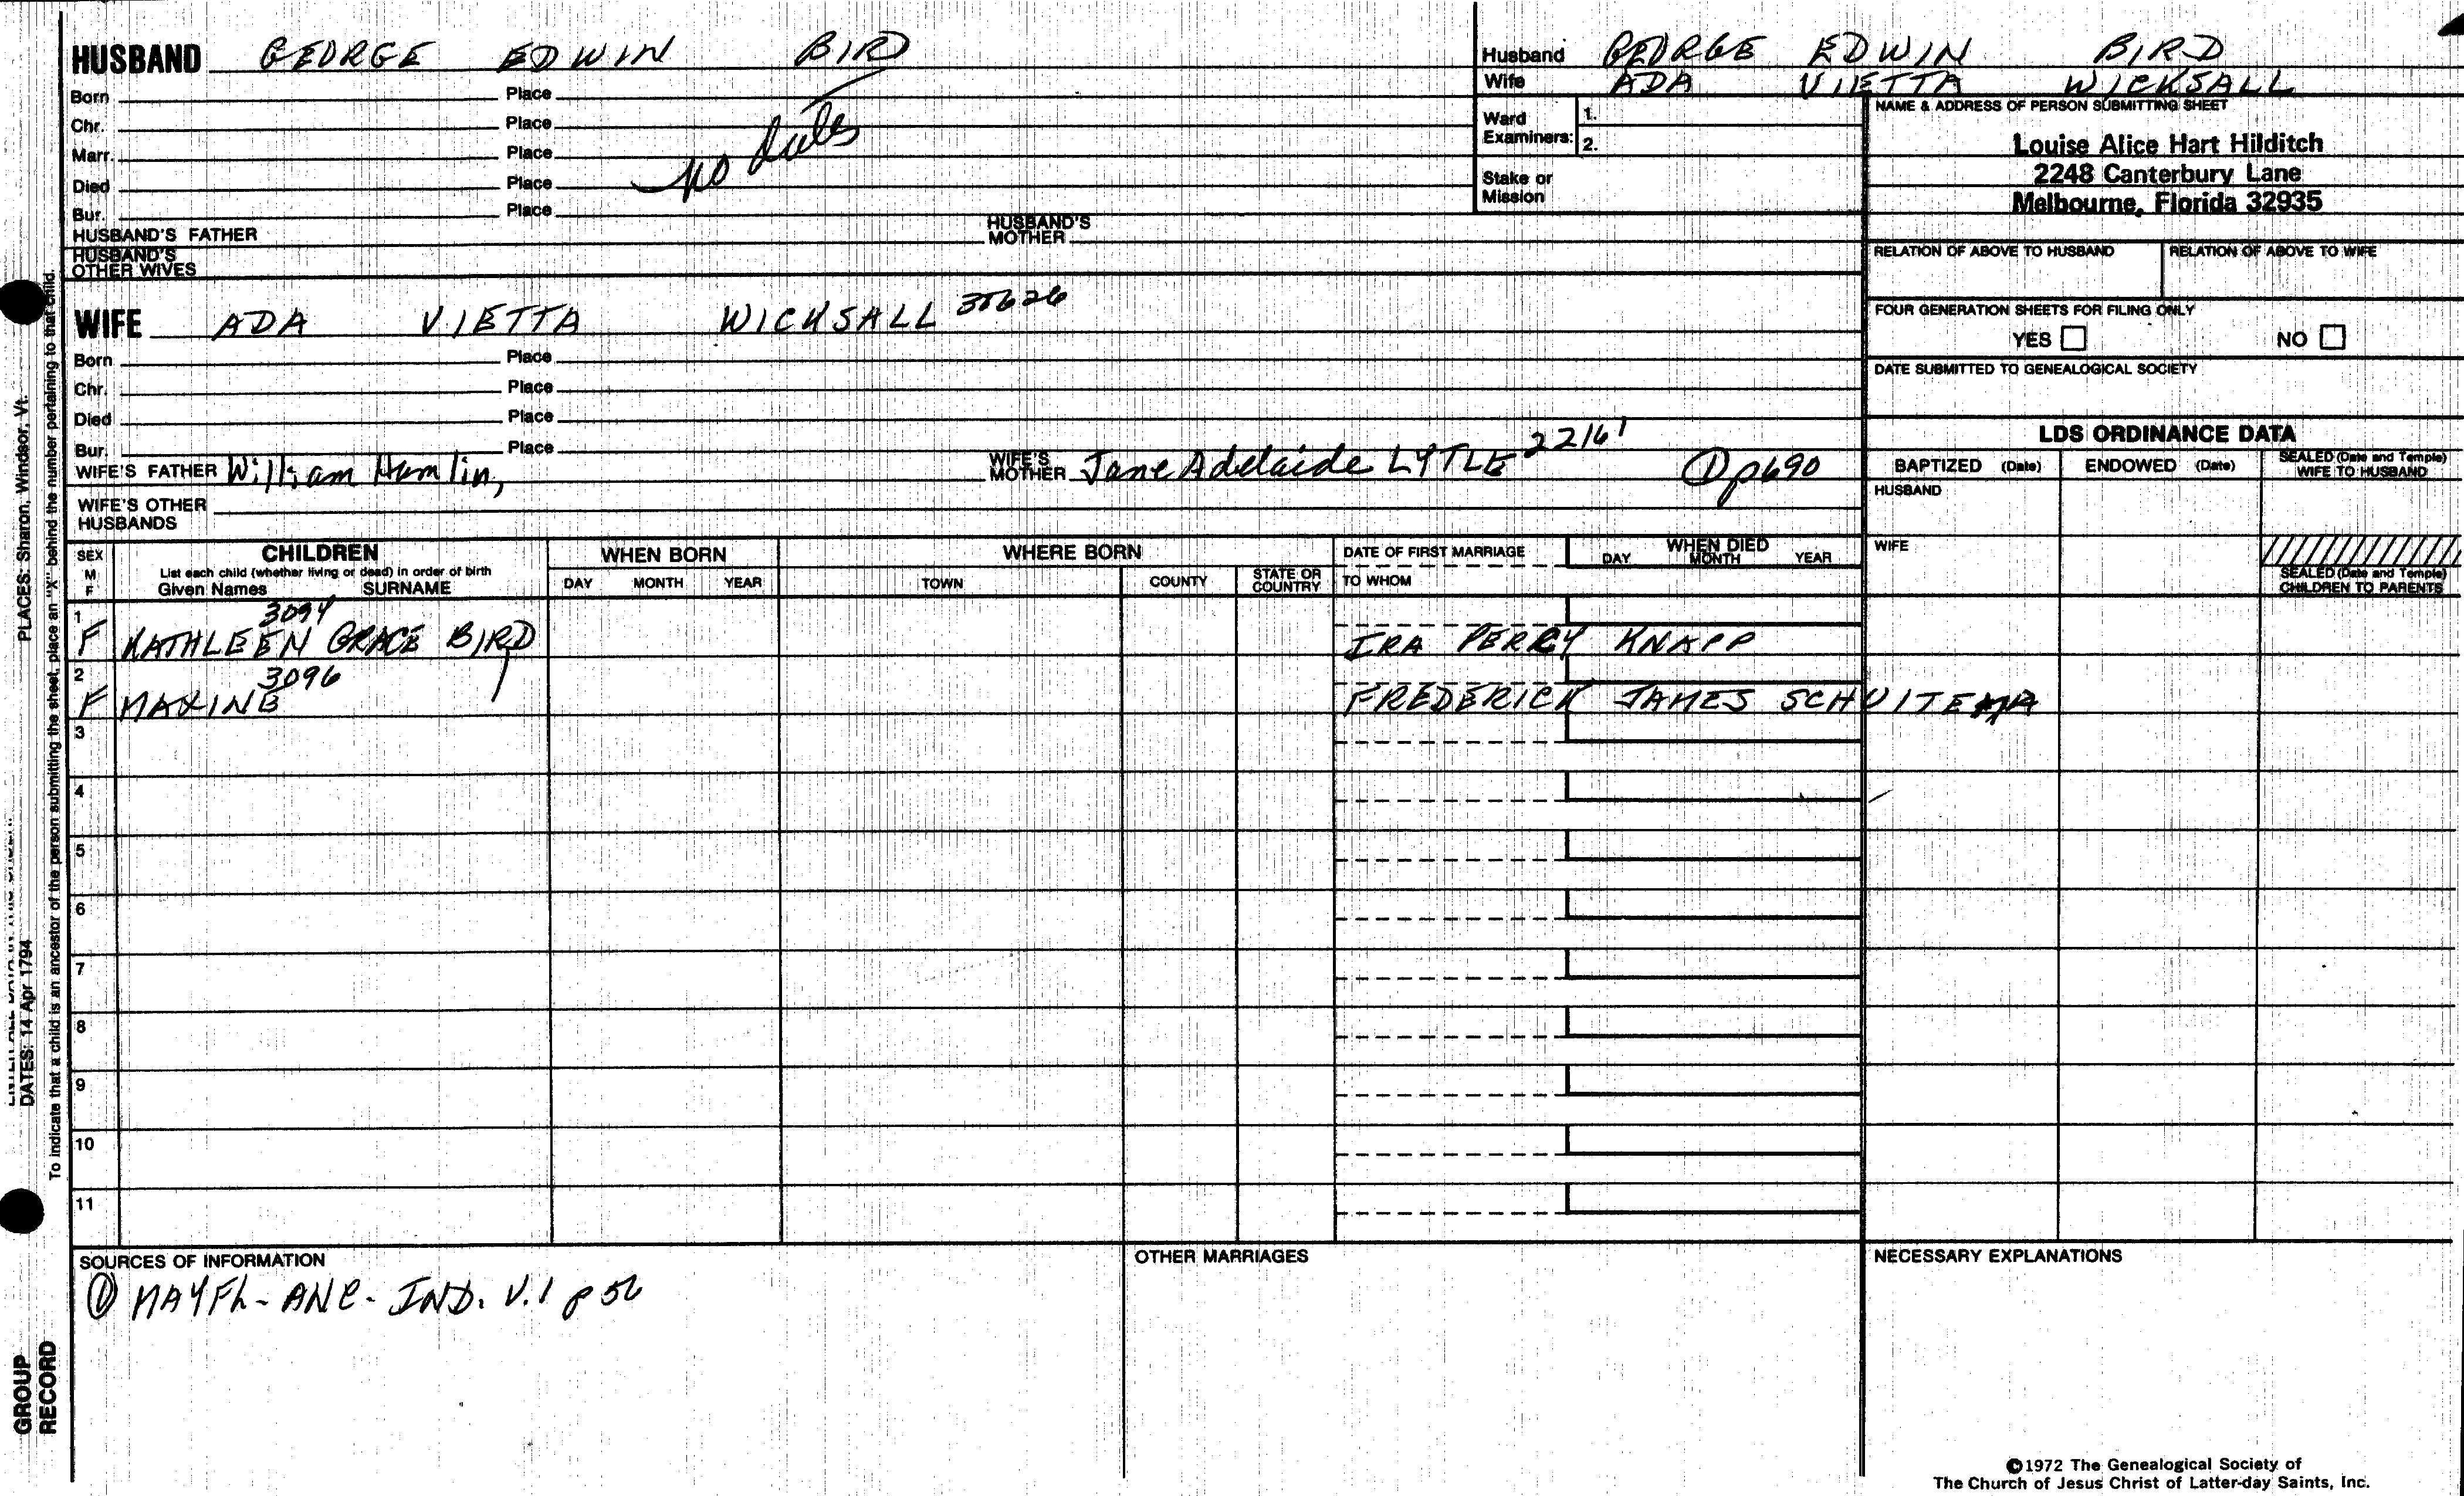 HUSBAND GEORGE EDWIN BIRD
Born Place
Chr. Place
Marr. Place
no dates
Died Place
Bur. Place
HUSBAND'S FATHER HUSBAND'S MOTHER
HUSBAND'S OTHER WIVES
WIFE ADA VIETTA WICKSALL 35626
Born Place
Chr. Place
Died Place
Bur. Place
WIFE'S FATHER William Hamlin, WIFE'S MOTHER Jane Adelaide LYTLE 22161 ① p690
WIFE'S OTHER HUSBANDS
Husband GEORGE EDWIN BIRD
Wife ADA VIETTA WICKSALL
Ward Examiners: 1.
2.
Stake or Mission
NAME & ADDRESS OF PERSON SUBMITTING SHEET
Louise Alice Hart Hilditch
2248 Canterbury Lane
Melbourne, Florida 32935
RELATION OF ABOVE TO HUSBAND RELATION OF ABOVE TO WIFE
FOUR GENERATION SHEETS FOR FILING ONLY
YES NO
DATE SUBMITTED TO GENEALOGICAL SOCIETY
LDS ORDINANCE DATA
BAPTIZED (Date) ENDOWED (Date) SEALED (Date and Temple) WIFE TO HUSBAND
HUSBAND
WIFE
SEALED (Date and Temple) CHILDREN TO PARENTS
SEX M F
CHILDREN
List each child (whether living or dead) in order of birth
Given Names SURNAME
WHEN BORN
DAY MONTH YEAR
WHERE BORN
TOWN COUNTY STATE OR COUNTRY
DATE OF FIRST MARRIAGE
TO WHOM
WHEN DIED
DAY MONTH YEAR
1 3094
F KATHLEEN GRACE BIRD IRA PERRY KNAPP
2 3096
F MAXINE FREDERICK JAMES SCHUITEMA
3
4
5
6
7
8
9
10
11
SOURCES OF INFORMATION
① MAYFL-ANC-IND. V.1 p 56
OTHER MARRIAGES
NECESSARY EXPLANATIONS
©1972 The Genealogical Society of
The Church of Jesus Christ of Latter-day Saints, Inc.
DATES: 14 Apr 1794 PLACES: Sharon, Windsor, Vt.
To indicate that a child is an ancestor of the person submitting the sheet, place an "X" behind the number pertaining to that child.
GROUP
RECORD